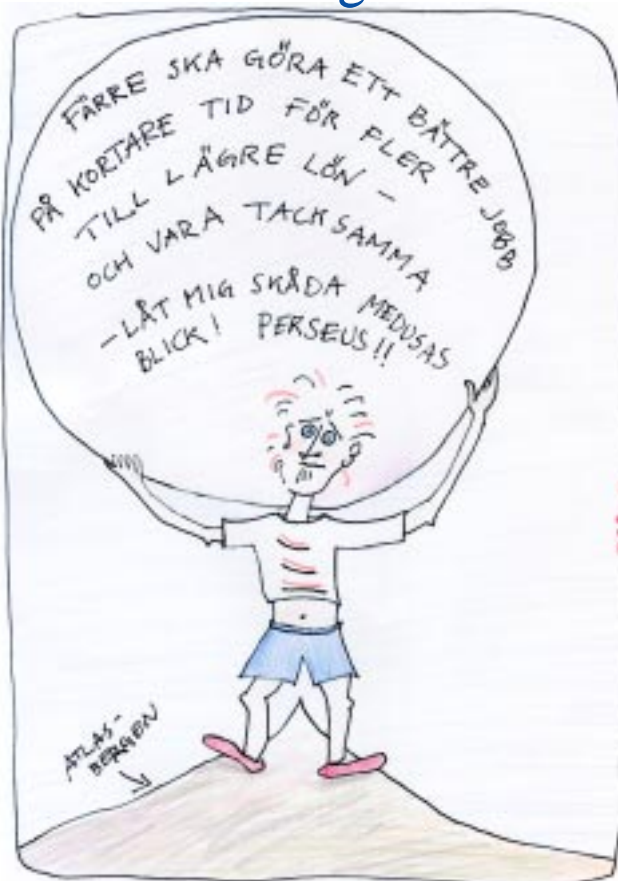 FÄRRE SKA GÖRA ETT BÄTTRE JOBB
PÅ KORTARE TID FÖR FLER
TILL LÄGRE LÖN –
OCH VARA TACKSAMMA
– LÅT MIG SKÅDA MEDUSAS
BLICK! PERSEUS!!
ATLAS-
BERGEN